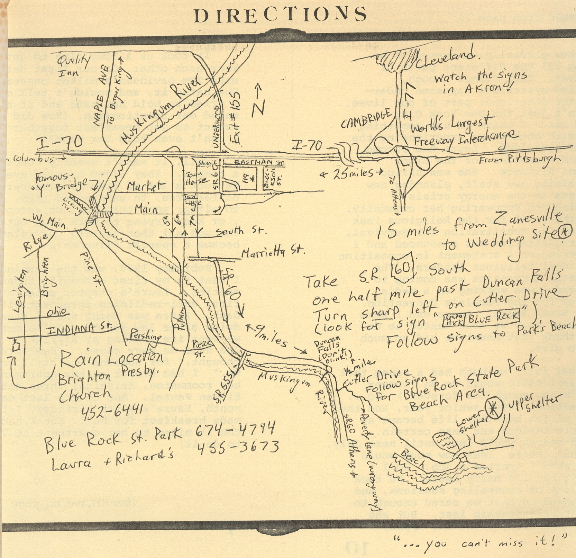 DIRECTIONS
Quality
Inn
MAPLE AVE
To Burger King →
Muskingum River
UNDERWOOD
Exit #155
N →
Cleveland.
watch the signs
in AKRON!
I-77
CAMBRIDGE
World's Largest
Freeway Interchange
I-70
I-70
Columbus
From Pittsburgh
To Athens
← 25 miles →
EASTMAN ST.
SR 60
Famous
"Y" Bridge
Market
Main
W. Main
5th
6th
7th
South St.
Marrietta St.
Ridge
Lexington
Brighton
Pine St.
ohio
INDIANA St.
Pershing
Putnam
SR 60
SR 555
9 miles
Muskingum
River
Duncan
Falls
15 miles from Zanesville
to Wedding Site *
Take S.R. 60 South
one half mile past Duncan Falls
Turn sharp left on Cutler Drive
(look for sign BLUE ROCK)
Follow signs to Park's Beach
½ mile
Cutler Drive
Follow signs
for Blue Rock State Park
Beach Area.
SR60 Athens
(wrong way)
Lower
shelter
*
Upper
shelter
Beach
Rain Location
Brighton Presby.
Church
452-6441
Blue Rock St. Park 674-4794
Laura + Richard's 455-3673
"... you can't miss it!"